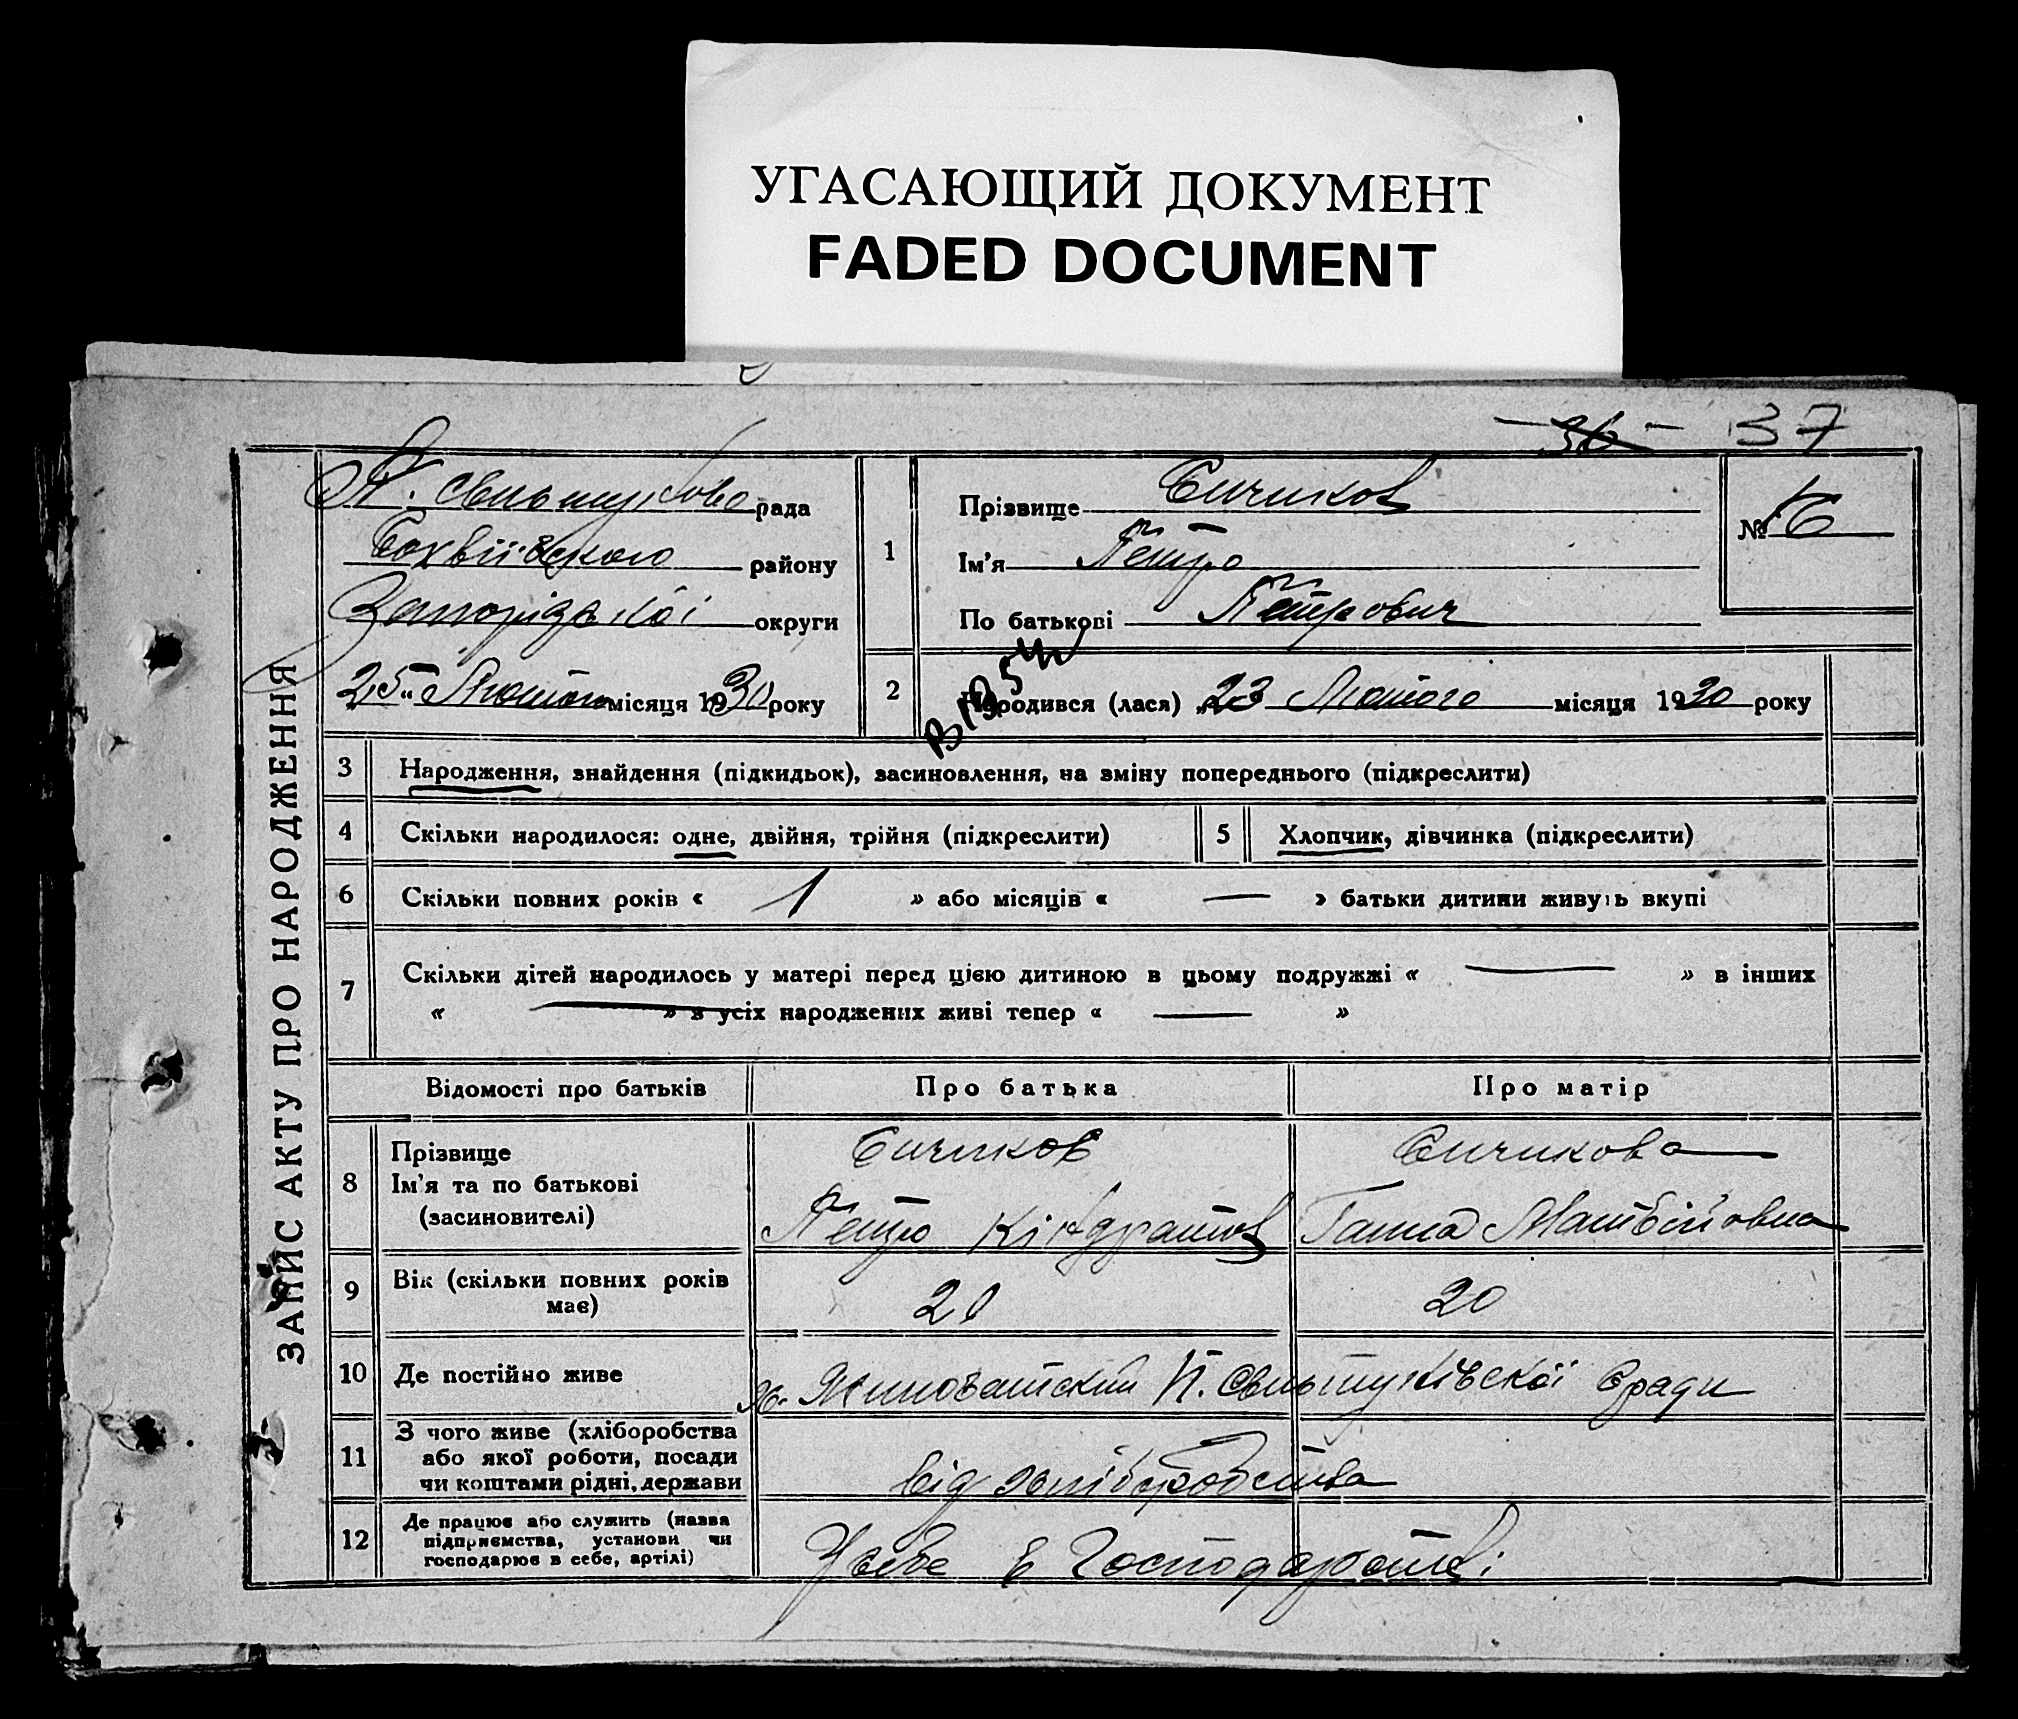 УГАСАЮЩИЙ ДОКУМЕНТ
FADED DOCUMENT
36 - 37
ЗАПИС АКТУ ПРО НАРОДЖЕННЯ
рада
району
Запорізької округи
25 Лютого місяця 1930 року
1
Прізвище
Ім'я Петро
По батькові Петрович
№ 16
2
Народився (лася) „23 Лютого місяця 1930 року
3 Народження, знайдення (підкидьок), засиновлення, на зміну попереднього (підкреслити)
4 Скільки народилося: одне, двійня, трійня (підкреслити)
5 Хлопчик, дівчинка (підкреслити)
6 Скільки повних років « 1 » або місяців « — » батьки дитини живуть вкупі
7 Скільки дітей народилось у матері перед цією дитиною в цьому подружжі « — » в інших
« — » з усіх народжених живі тепер « — »
Відомості про батьків Про батька Про матір
8 Прізвище
Ім'я та по батькові
(засиновителі)
Петро Кіндратов Ганна Матвійовна
9 Вік (скільки повних років
має)
20
10 Де постійно живе
х.
11 З чого живе (хліборобства
або якої роботи, посади
чи коштами рідні, держави
від хліборобства
12 Де працює або служить (назва
підприємства, установи чи
господарює в себе, артілі)
У себе в господарстві